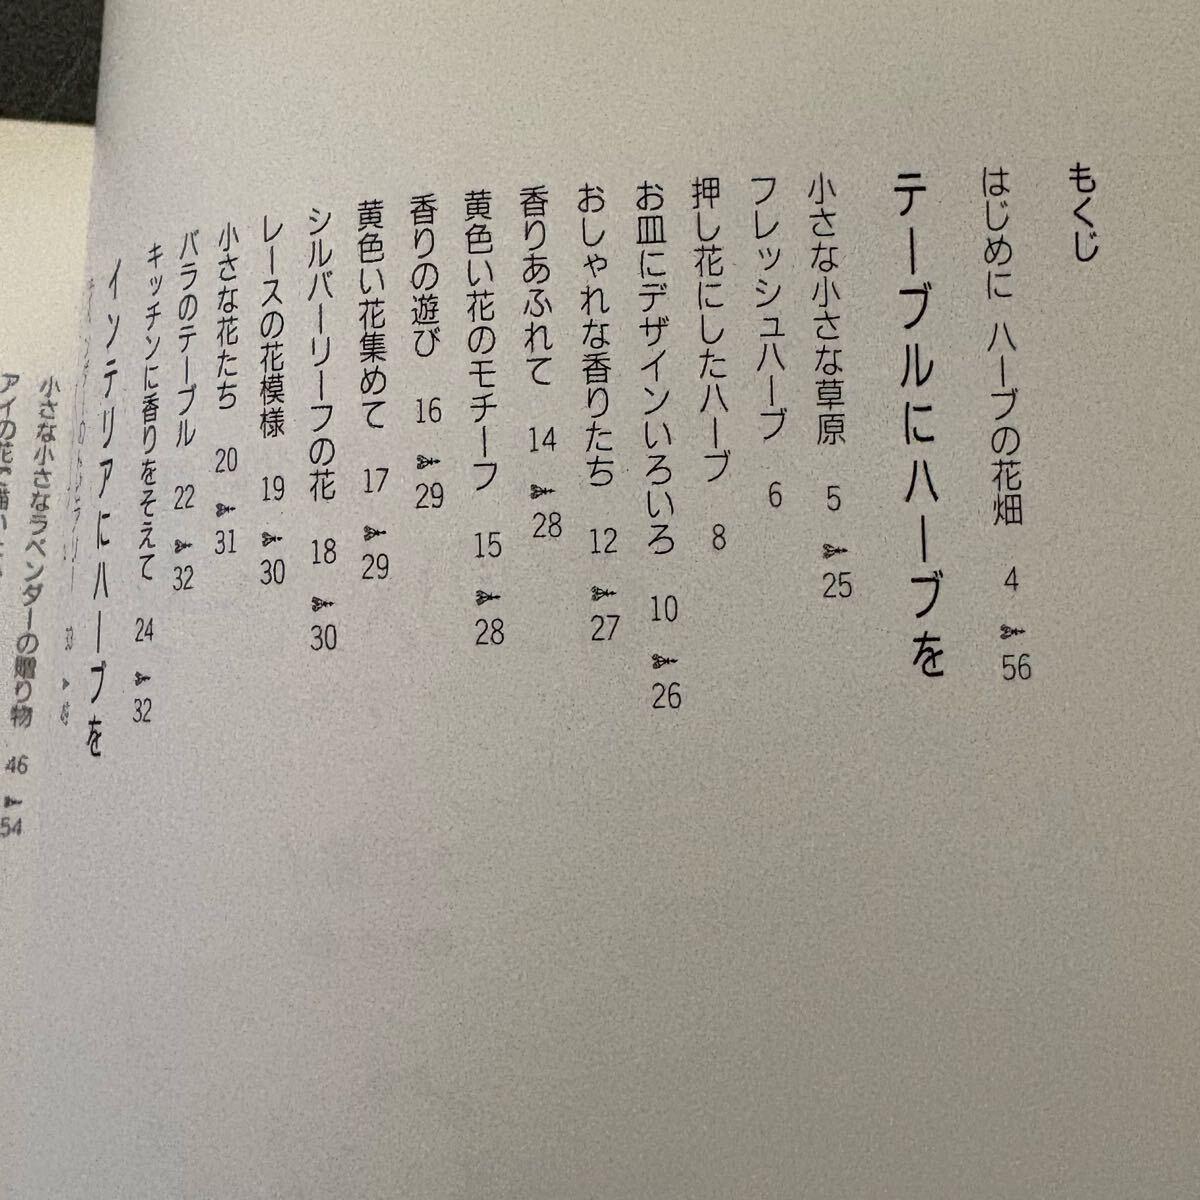 もくじ
はじめに ハーブの花畑 4 56
テーブルにハーブを
小さな小さな草原 5 25
フレッシュハーブ 6
押し花にしたハーブ 8
お皿にデザインいろいろ 10 26
おしゃれな香りたち 12 27
香りあふれて 14 28
黄色い花のモチーフ 15 28
香りの遊び 16 29
黄色い花集めて 17 29
シルバーリーフの花 18 30
レースの花模様 19 30
小さな花たち 20 31
バラのテーブル 22 32
キッチンに香りをそえて 24 32
インテリアにハーブを
小さな小さなラベンダーの贈り物 46 54
アイの花で描いた